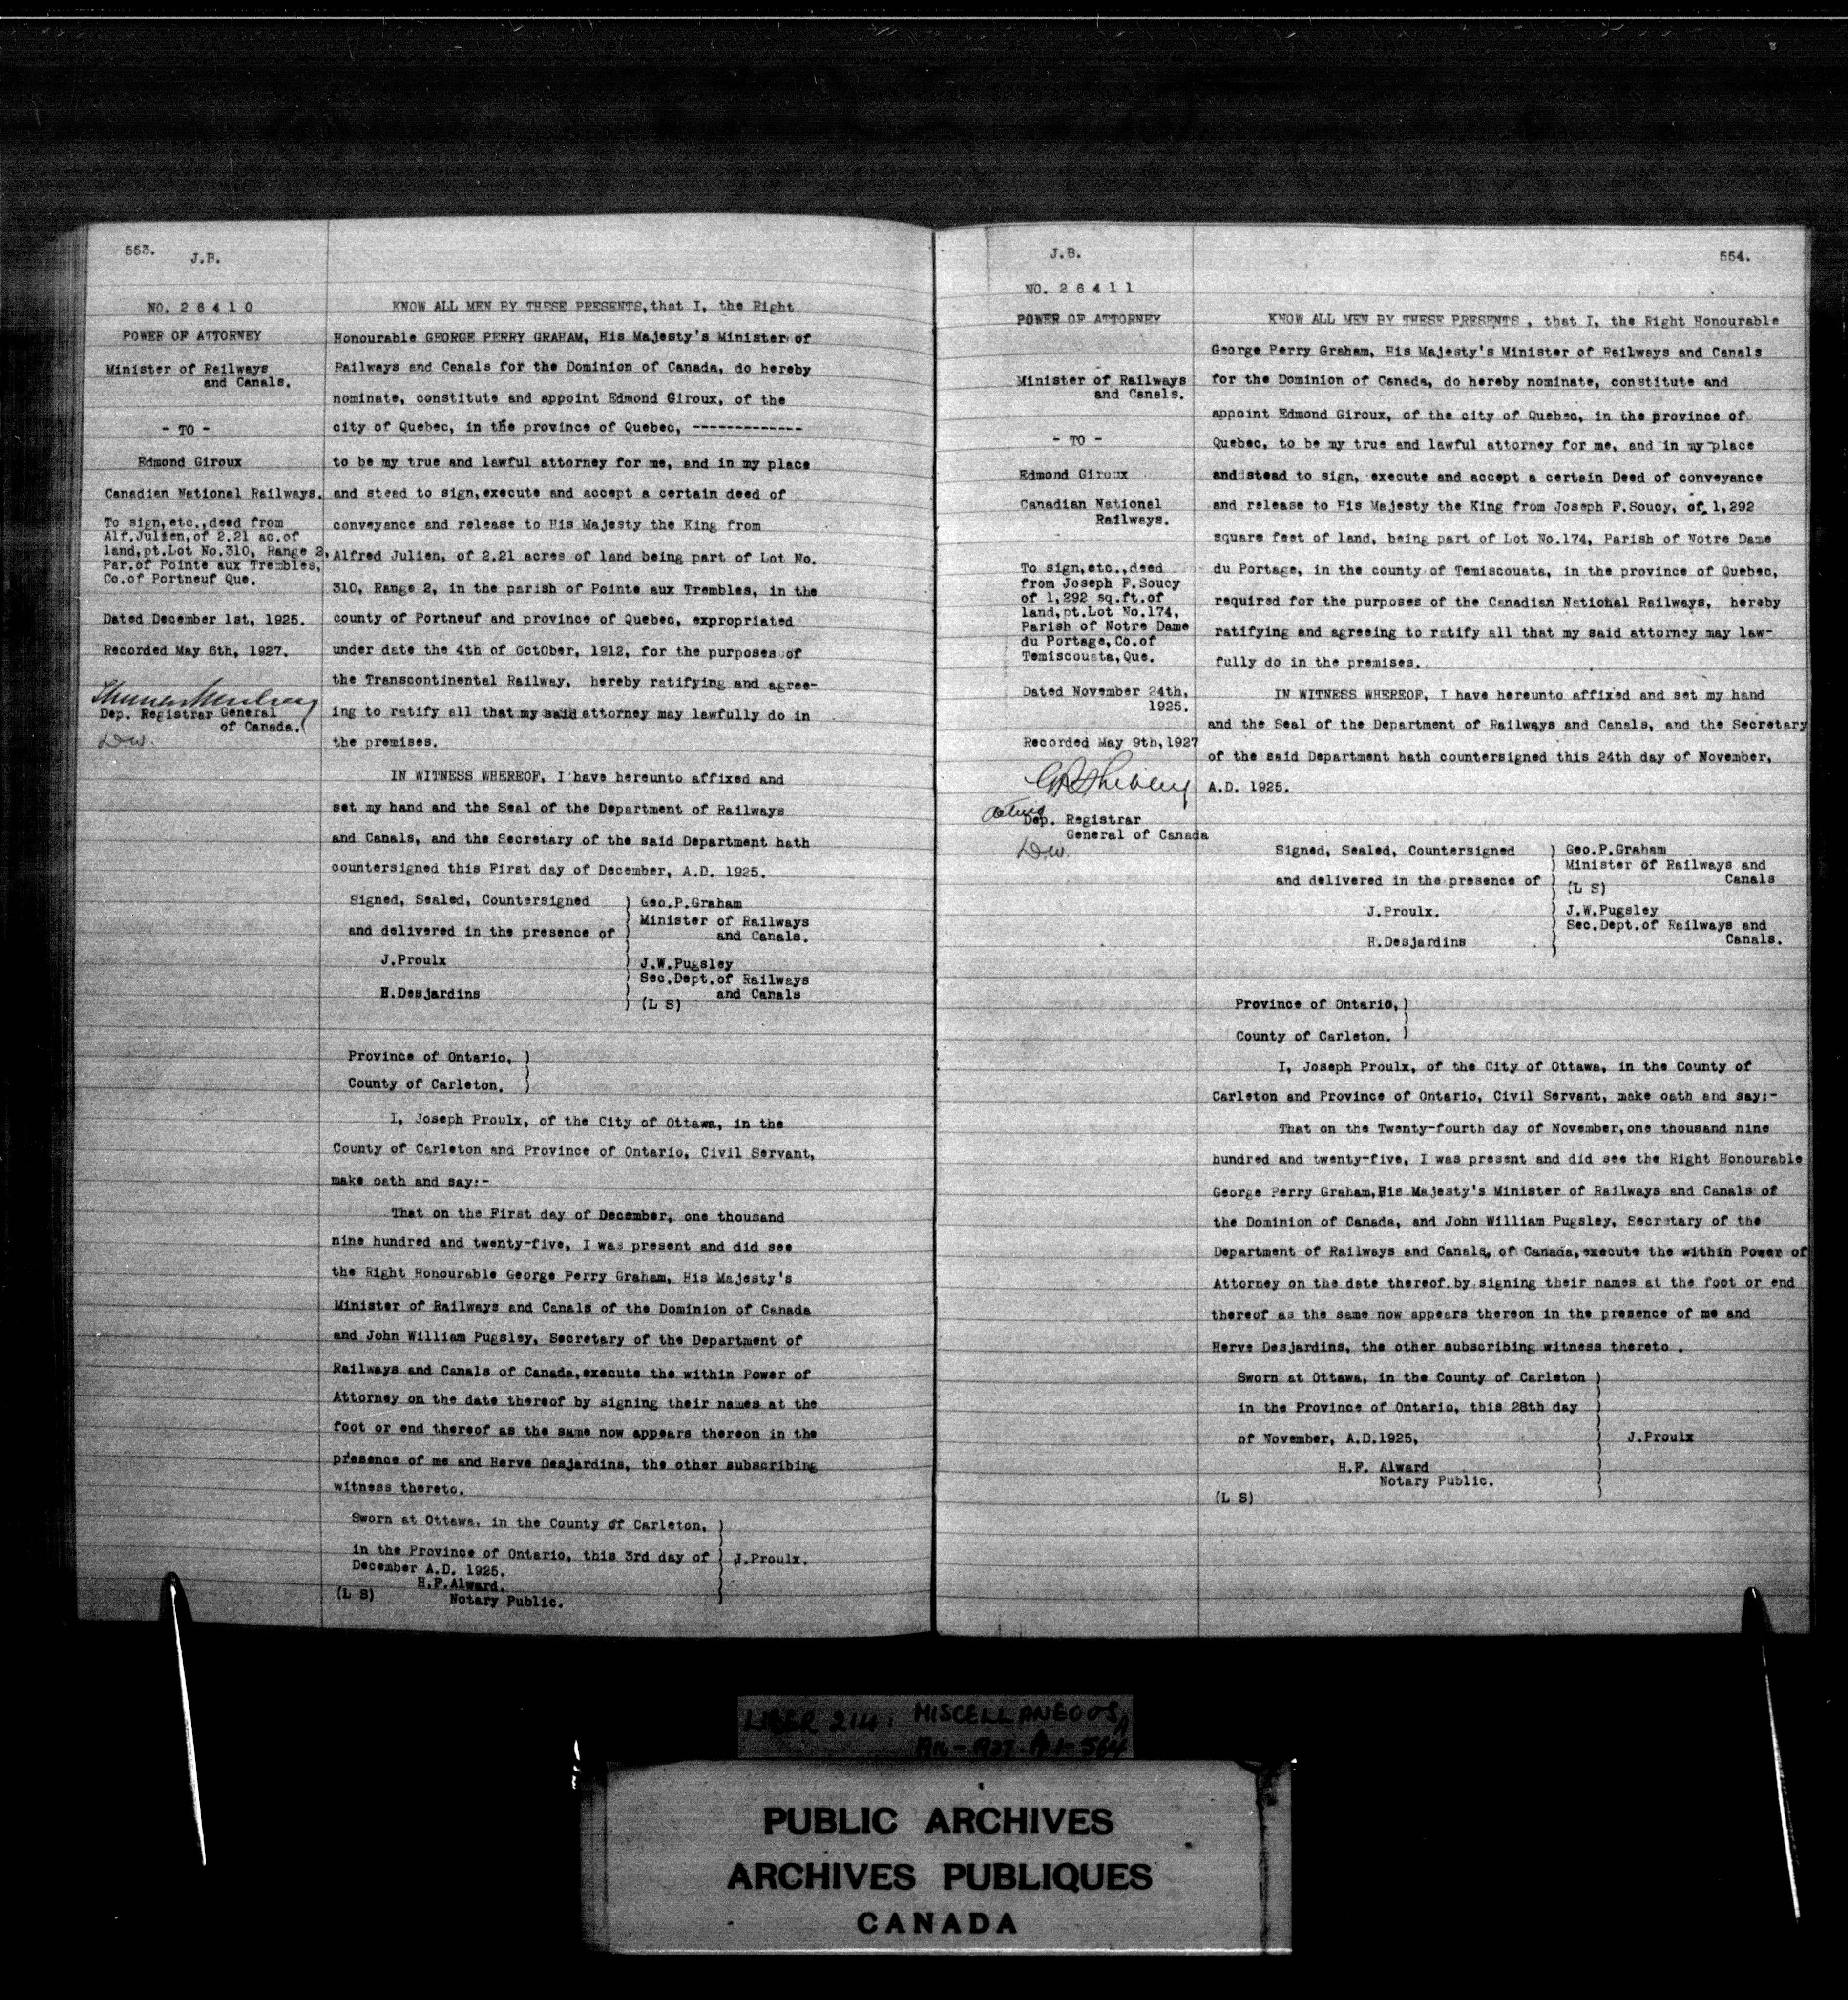 553.
J.B.
NO. 2 6 4 1 0
POWER OF ATTORNEY
Minister of Railways
and Canals.
- TO -
Edmond Giroux
Canadian National Railways.
To sign,etc.,deed from
Alf.Julien,of 2.21 ac.of
land,pt.Lot No.310, Range 2,
Par.of Pointe aux Trembles,
Co.of Portneuf Que.
Dated December 1st, 1925.
Recorded May 6th, 1927.
Dep. Registrar General
of Canada.
D.W.
KNOW ALL MEN BY THESE PRESENTS,that I, the Right
Honourable GEORGE PERRY GRAHAM, His Majesty's Minister of
Railways and Canals for the Dominion of Canada, do hereby
nominate, constitute and appoint Edmond Giroux, of the
city of Quebec, in the province of Quebec, -------------
to be my true and lawful attorney for me, and in my place
and stead to sign,execute and accept a certain deed of
conveyance and release to His Majesty the King from
Alfred Julien, of 2.21 acres of land being part of Lot No.
310, Range 2, in the parish of Pointe aux Trembles, in the
county of Portneuf and province of Quebec, expropriated
under date the 4th of OctOber, 1912, for the purposes of
the Transcontinental Railway, hereby ratifying and agree-
ing to ratify all that my said attorney may lawfully do in
the premises.
IN WITNESS WHEREOF, I have hereunto affixed and
set my hand and the Seal of the Department of Railways
and Canals, and the Secretary of the said Department hath
countersigned this First day of December, A.D. 1925.
Signed, Sealed, Countersigned ) Geo.P.Graham
) Minister of Railways
and delivered in the presence of ) and Canals.
J.Proulx ) J.W.Pugsley
) Sec.Dept.of Railways
H.Desjardins ) and Canals
) (L S)
Province of Ontario, )
County of Carleton. )
I, Joseph Proulx, of the City of Ottawa, in the
County of Carleton and Province of Ontario, Civil Servant,
make oath and say:-
That on the First day of December, one thousand
nine hundred and twenty-five, I was present and did see
the Right Honourable George Perry Graham, His Majesty's
Minister of Railways and Canals of the Dominion of Canada
and John William Pugsley, Secretary of the Department of
Railways and Canals of Canada,execute the within Power of
Attorney on the date thereof by signing their names at the
foot or end thereof as the same now appears thereon in the
presence of me and Herve Desjardins, the other subscribing
witness thereto.
Sworn at Ottawa, in the County of Carleton, )
in the Province of Ontario, this 3rd day of ) J.Proulx.
December A.D. 1925.
H.F.Alward.
(L S) Notary Public.
J.B.
554.
NO. 2 6 4 1 1
POWER OF ATTORNEY
Minister of Railways
and Canals.
- TO -
Edmond Giroux
Canadian National
Railways.
To sign,etc.,deed
from Joseph F.Soucy
of 1,292 sq.ft.of
land,pt.Lot No.174,
Parish of Notre Dame
du Portage,Co.of
Temiscouata,Que.
Dated November 24th,
1925.
Recorded May 9th,1927
Acting
Dep. Registrar
General of Canada
D.W.
KNOW ALL MEN BY THESE PRESENTS , that I, the Right Honourable
George Perry Graham, His Majesty's Minister of Railways and Canals
for the Dominion of Canada, do hereby nominate, constitute and
appoint Edmond Giroux, of the city of Quebec, in the province of
Quebec, to be my true and lawful attorney for me, and in my place
and stead to sign, execute and accept a certain Deed of conveyance
and release to His Majesty the King from Joseph F.Soucy, of 1,292
square feet of land, being part of Lot No.174, Parish of Notre Dame
du Portage, in the county of Temiscouata, in the province of Quebec,
required for the purposes of the Canadian National Railways, hereby
ratifying and agreeing to ratify all that my said attorney may law-
fully do in the premises.
IN WITNESS WHEREOF, I have hereunto affixed and set my hand
and the Seal of the Department of Railways and Canals, and the Secretary
of the said Department hath countersigned this 24th day of November,
A.D. 1925.
Signed, Sealed, Countersigned ) Geo.P.Graham
) Minister of Railways and
and delivered in the presence of ) Canals
) (L S)
J.Proulx. ) J.W.Pugsley
) Sec.Dept.of Railways and
H.Desjardins ) Canals.
Province of Ontario,)
County of Carleton. )
I, Joseph Proulx, of the City of Ottawa, in the County of
Carleton and Province of Ontario, Civil Servant, make oath and say:-
That on the Twenty-fourth day of November,one thousand nine
hundred and twenty-five, I was present and did see the Right Honourable
George Perry Graham,His Majesty's Minister of Railways and Canals of
the Dominion of Canada, and John William Pugsley, Secretary of the
Department of Railways and Canals, of Canada,execute the within Power of
Attorney on the date thereof by signing their names at the foot or end
thereof as the same now appears thereon in the presence of me and
Herve Desjardins, the other subscribing witness thereto .
Sworn at Ottawa, in the County of Carleton )
in the Province of Ontario, this 28th day )
of November, A.D.1925, ) J.Proulx
H.F. Alward
Notary Public.
(L S)
LIBER 214: MISCELLANEOUS,
1916-1927. 1-564
PUBLIC ARCHIVES
ARCHIVES PUBLIQUES
CANADA